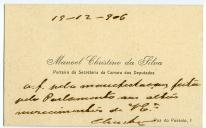 19-12-906
Manoel Christino da Silva
Porteiro da Secretaria da Camara dos Deputados
a. f. pela manifestação feita
pelo Parlamento aos altos
merecimentos de V. Exª.
Rua do Passeio, 1